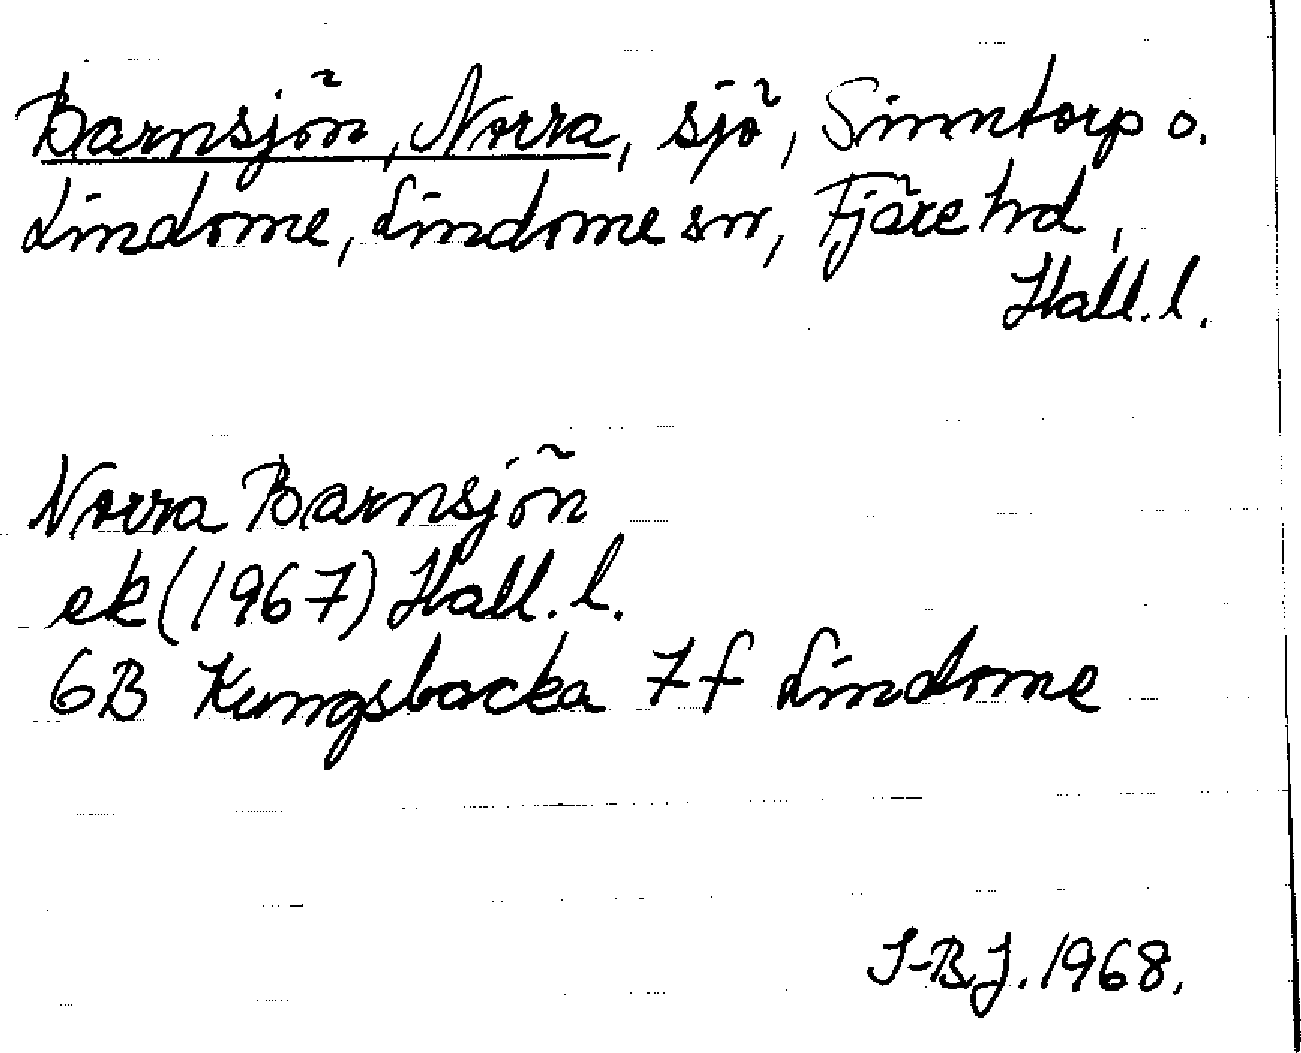 Barnsjön, Norra, sjö, Sinntorp o.
Lindome, Lindome sn, Fjäre hd,
Hall. l.
Norra Barnsjön
ek (1967) Hall. l.
6B Kungsbacka 7f Lindome
I-B.J. 1968.